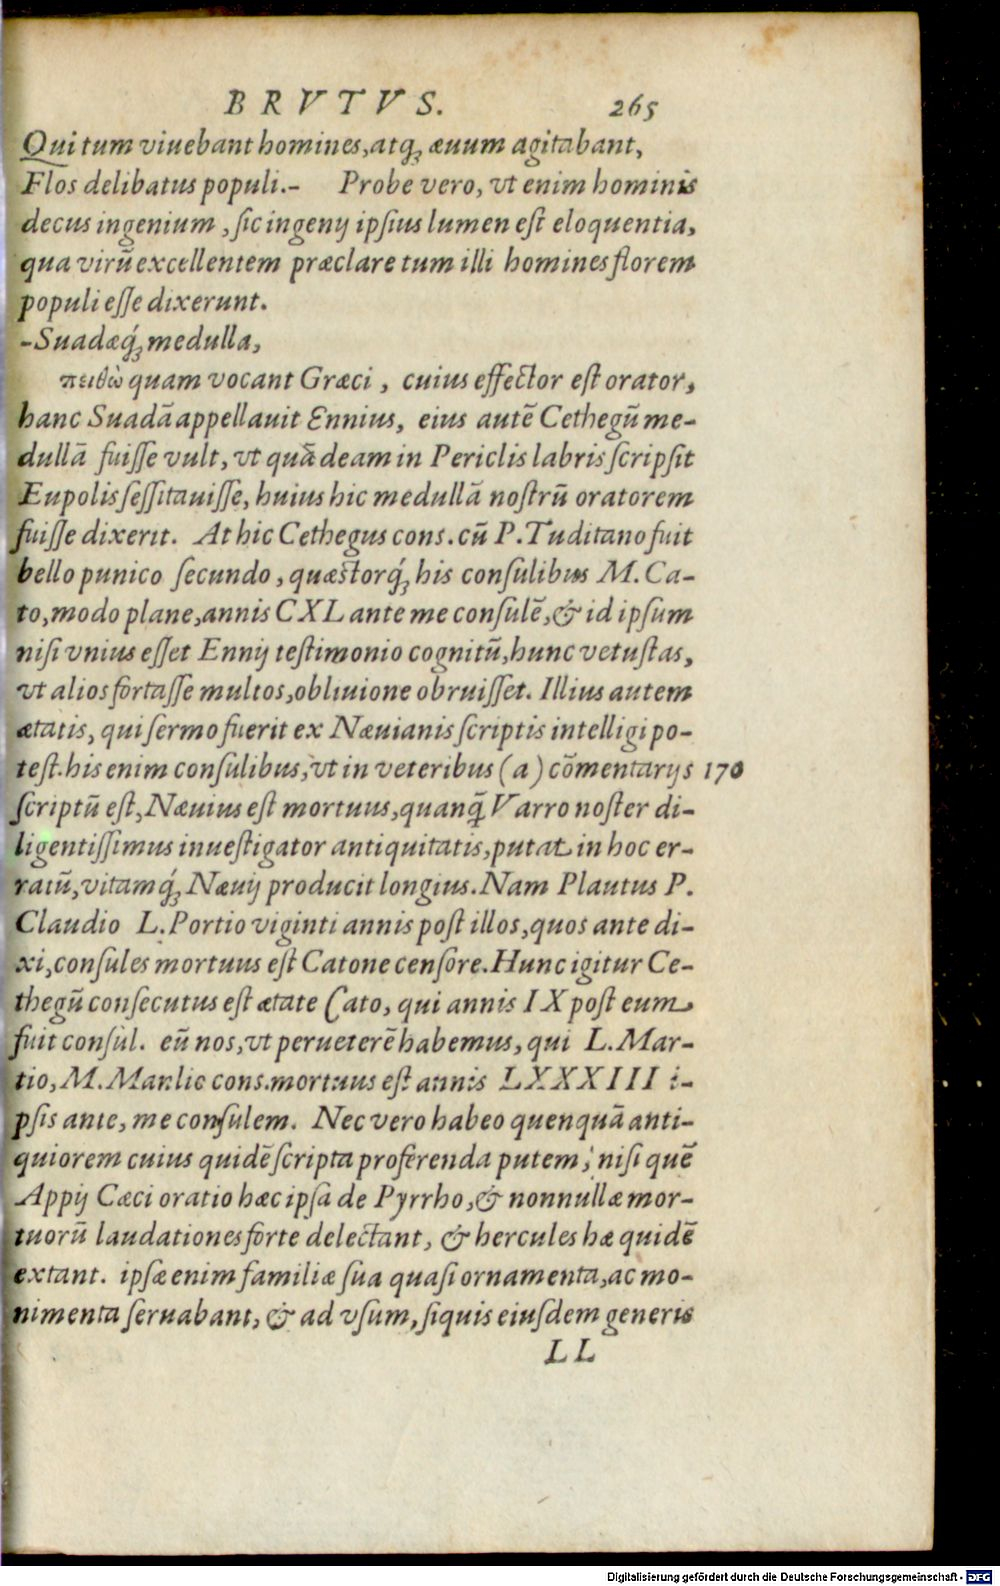 BRVTVS. 265
Qui tum viuebant homines, atq; æuum agitabant,
Flos delibatus populi.- Probe vero, vt enim hominis
decus ingenium, sic ingenij ipsius lumen est eloquentia,
qua virũ excellentem præclare tum illi homines florem
populi esse dixerunt.
-Suadæq́; medulla,
πειθὼ quam vocant Græci, cuius effector est orator,
hanc Suadã appellauit Ennius, eius autẽ Cethegũ me-
dullã fuisse vult, vt quã deam in Periclis labris scripsit
Eupolis sessitauisse, huius hic medullã nostrũ oratorem
fuisse dixerit. At hic Cethegus cons. cũ P. Tuditano fuit
bello punico secundo, quæstorq́; his consulibus M. Ca-
to, modo plane, annis CXL ante me consulẽ, & id ipsum
nisi vnius esset Ennij testimonio cognitũ, hunc vetustas,
vt alios fortasse multos, obliuione obruisset. Illius autem
ætatis, qui sermo fuerit ex Næuianis scriptis intelligi po-
test. his enim consulibus, vt in veteribus (a) cõmentarijs 170
scriptũ est, Næuius est mortuus, quanq̃ Varro noster di-
ligentissimus inuestigator antiquitatis, putat in hoc er-
ratũ, vitamq́; Næuij producit longius. Nam Plautus P.
Claudio L. Portio viginti annis post illos, quos ante di-
xi, consules mortuus est Catone censore. Hunc igitur Ce-
thegũ consecutus est ætate Cato, qui annis IX post eum
fuit consul. eũ nos, vt perueterẽ habemus, qui L. Mar-
tio, M. Manlio cons. mortuus est annis LXXXIII i-
psis ante, me consulem. Nec vero habeo quenquã anti-
quiorem cuius quidẽ scripta proferenda putem, nisi quẽ
Appij Cæci oratio hæc ipsa de Pyrrho, & nonnullæ mor-
tuorũ laudationes forte delectant, & hercules hæ quidẽ
extant. ipsæ enim familiæ sua quasi ornamenta, ac mo-
nimenta seruabant, & ad vsum, siquis eiusdem generis
LL
Digitalisierung gefördert durch die Deutsche Forschungsgemeinschaft - DFG